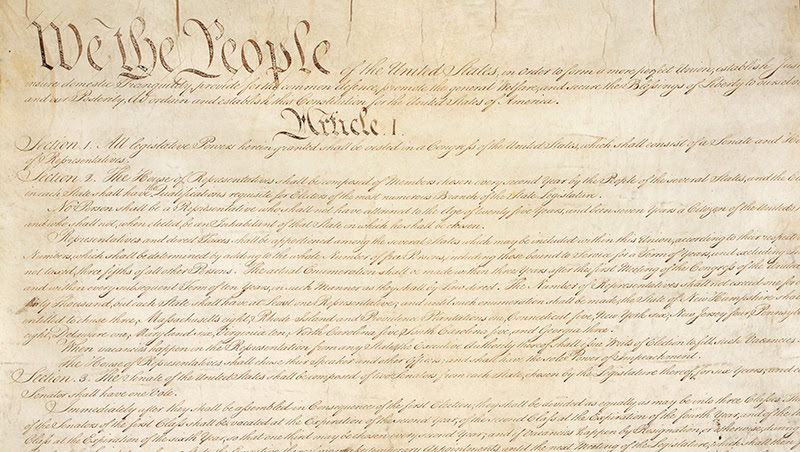 We the People of the United States, in Order to form a more perfect Union, establish Justi
insure domestic Tranquility, provide for the common defence, promote the general Welfare, and secure the Blessings of Liberty to ourselve
and our Posterity, do ordain and establish this Constitution for the United States of America.
Article. I.
Section. 1. All legislative Powers herein granted shall be vested in a Congress of the United States, which shall consist of a Senate and Ho
of Representatives.
Section. 2. The House of Representatives shall be composed of Members chosen every second Year by the People of the several States, and the Ele
in each State shall have the Qualifications requisite for Electors of the most numerous Branch of the State Legislature.
No Person shall be a Representative who shall not have attained to the Age of twenty five Years, and been seven Years a Citizen of the United S
and who shall not, when elected, be an Inhabitant of that State in which he shall be chosen.
Representatives and direct Taxes shall be apportioned among the several States which may be included within this Union, according to their respect
Numbers, which shall be determined by adding to the whole Number of free Persons, including those bound to Service for a Term of Years, and excluding
not taxed, three fifths of all other Persons. The actual Enumeration shall be made within three Years after the first Meeting of the Congress of the United
and within every subsequent Term of ten Years, in such Manner as they shall by Law direct. The Number of Representatives shall not exceed one for
thirty Thousand, but each State shall have at Least one Representative; and until such enumeration shall be made, the State of New Hampshire shall
entitled to chuse three, Massachusetts eight, Rhode Island and Providence Plantations one, Connecticut five, New York six, New Jersey four, Pennsylv
eight, Delaware one, Maryland six, Virginia ten, North Carolina five, South Carolina five, and Georgia three.
When vacancies happen in the Representation from any State, the Executive Authority thereof shall issue Writs of Election to fill such Vacancies.
The House of Representatives shall chuse their Speaker and other Officers; and shall have the sole Power of Impeachment.
Section. 3. The Senate of the United States shall be composed of two Senators from each State, chosen by the Legislature thereof, for six Years; and
Senator shall have one Vote.
Immediately after they shall be assembled in Consequence of the first Election, they shall be divided as equally as may be into three Classes. The
of the Senators of the first Class shall be vacated at the Expiration of the second Year, of the second Class at the Expiration of the fourth Year, and of the th
Class at the Expiration of the sixth Year, so that one third may be chosen every second Year; and if Vacancies happen by Resignation, or otherwise, during
Appointments until the next Meeting of the Legislature, which shall then